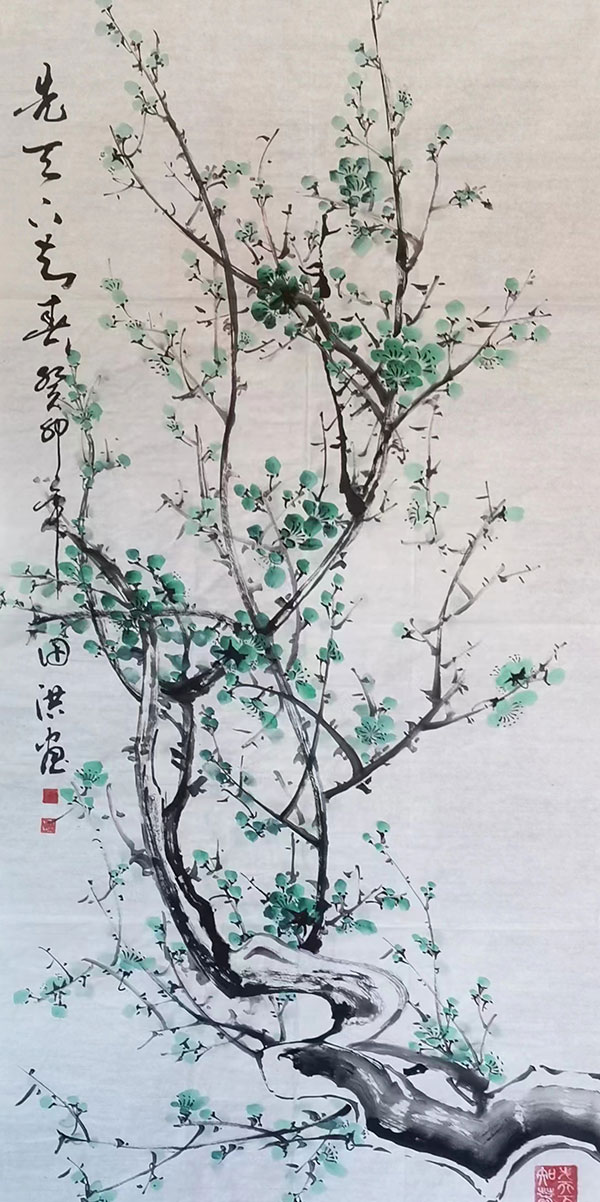 先天下春癸卯年田洪画